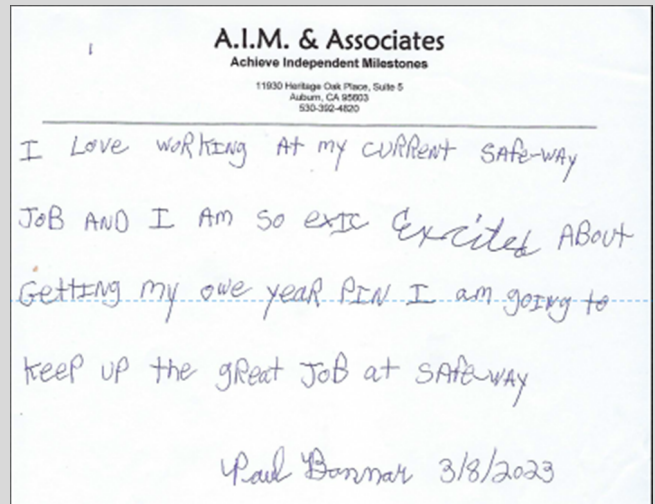 A.I.M. & Associates
Achieve Independent Milestones
11930 Heritage Oak Place, Suite 5
Auburn, CA 95603
530-392-4820
I Love WORKING At my CURRent SAfe-wAy
JoB AND I Am So exIc Excited ABout
GettING my owe yeaR PIN I am goIng to
keeP UP the gReat JoB at SAfe-wAy
Paul Bannar 3/8/2023